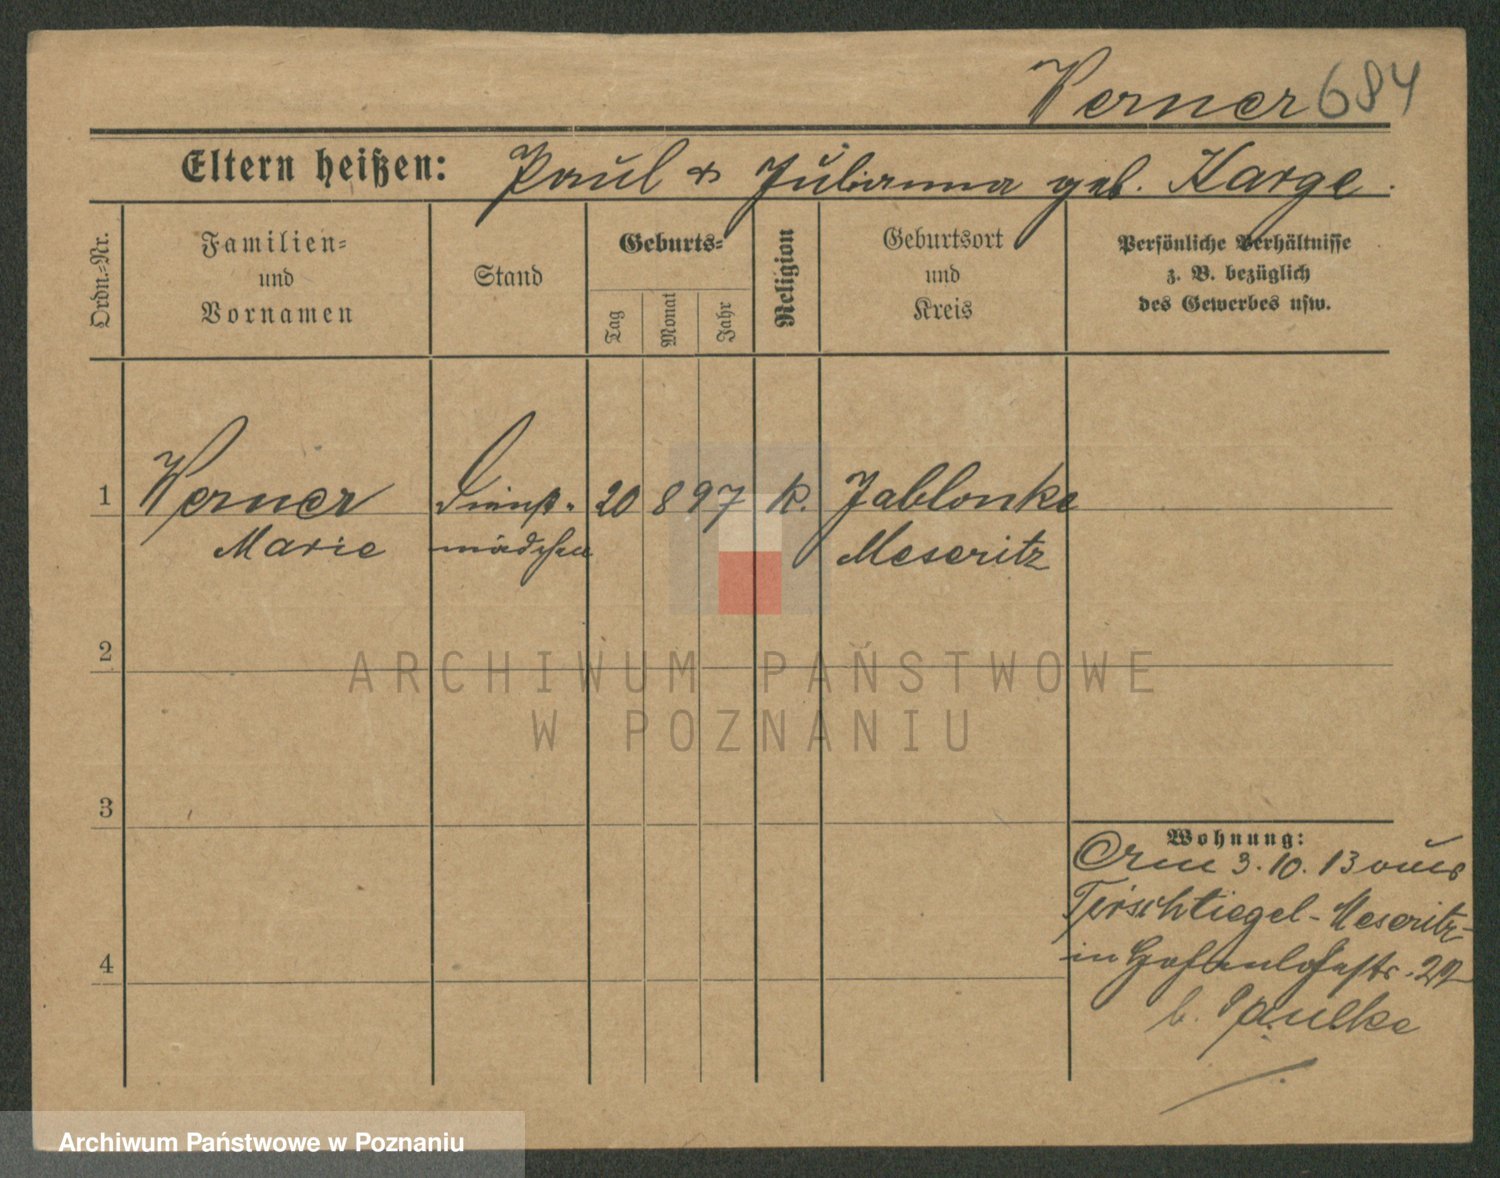 Werner 684
Eltern heißen: Paul & Julianna geb. Karge.
Ordn.-Nr.
Familien-
und
Vornamen
Stand
Geburts-
Tag
Monat
Jahr
Religion
Geburtsort
und
Kreis
Persönliche Verhältnisse
z. B. bezüglich
des Gewerbes usw.
1 Werner Dienst- 20 8 97 k. Jablonke
Marie mädchen Meseritz
2
ARCHIWUM PAŃSTWOWE
W POZNANIU
3
Wohnung:
Am 3.10.13 aus
Tirschtiegel-Meseritz-
4
in Hohenlohestr. 22
b. Paulke
Archiwum Państwowe w Poznaniu